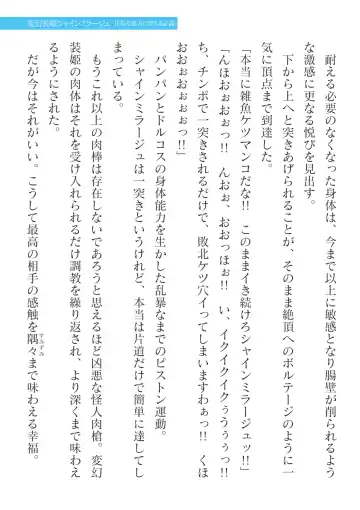 変幻装姫シャインミラージュ
耐える必要のなくなった身体は、今まで以上に敏感となり腸壁が削られるよう
な激感に更なる悦びを見出す。
下から上へと突きあげられることが、そのまま絶頂へのボルテージのように一
気に頂点まで到達した。
「本当に雑魚ケツマンコだな!! このままイき続けろシャインミラージュッ!!」
「んほおぉおぉっ!! んおぉ、おおっほぉ!! い、イクイクイクぅうぅぅっ!!
ち、チンポで一突きされるだけで、敗北ケツ穴イってしまいますわぁっ!! くほ
おおぉおぉぉぉぉっ!!」
パンパンとドルコスの身体能力を生かした乱暴なまでのピストン運動。
シャインミラージュは一突きというけれど、本当は片道だけで簡単に達してし
まっている。
もうこれ以上の肉棒は存在しないであろうと思えるほど凶悪な怪人肉槍。変幻
装姫の肉体はそれを受け入れられるだけ調教を繰り返され、より深くまで味わえ
るようにされた。
だが今はそれがいい。こうして最高の相手の感触を隅々まで味わえる幸福。
すみずみ